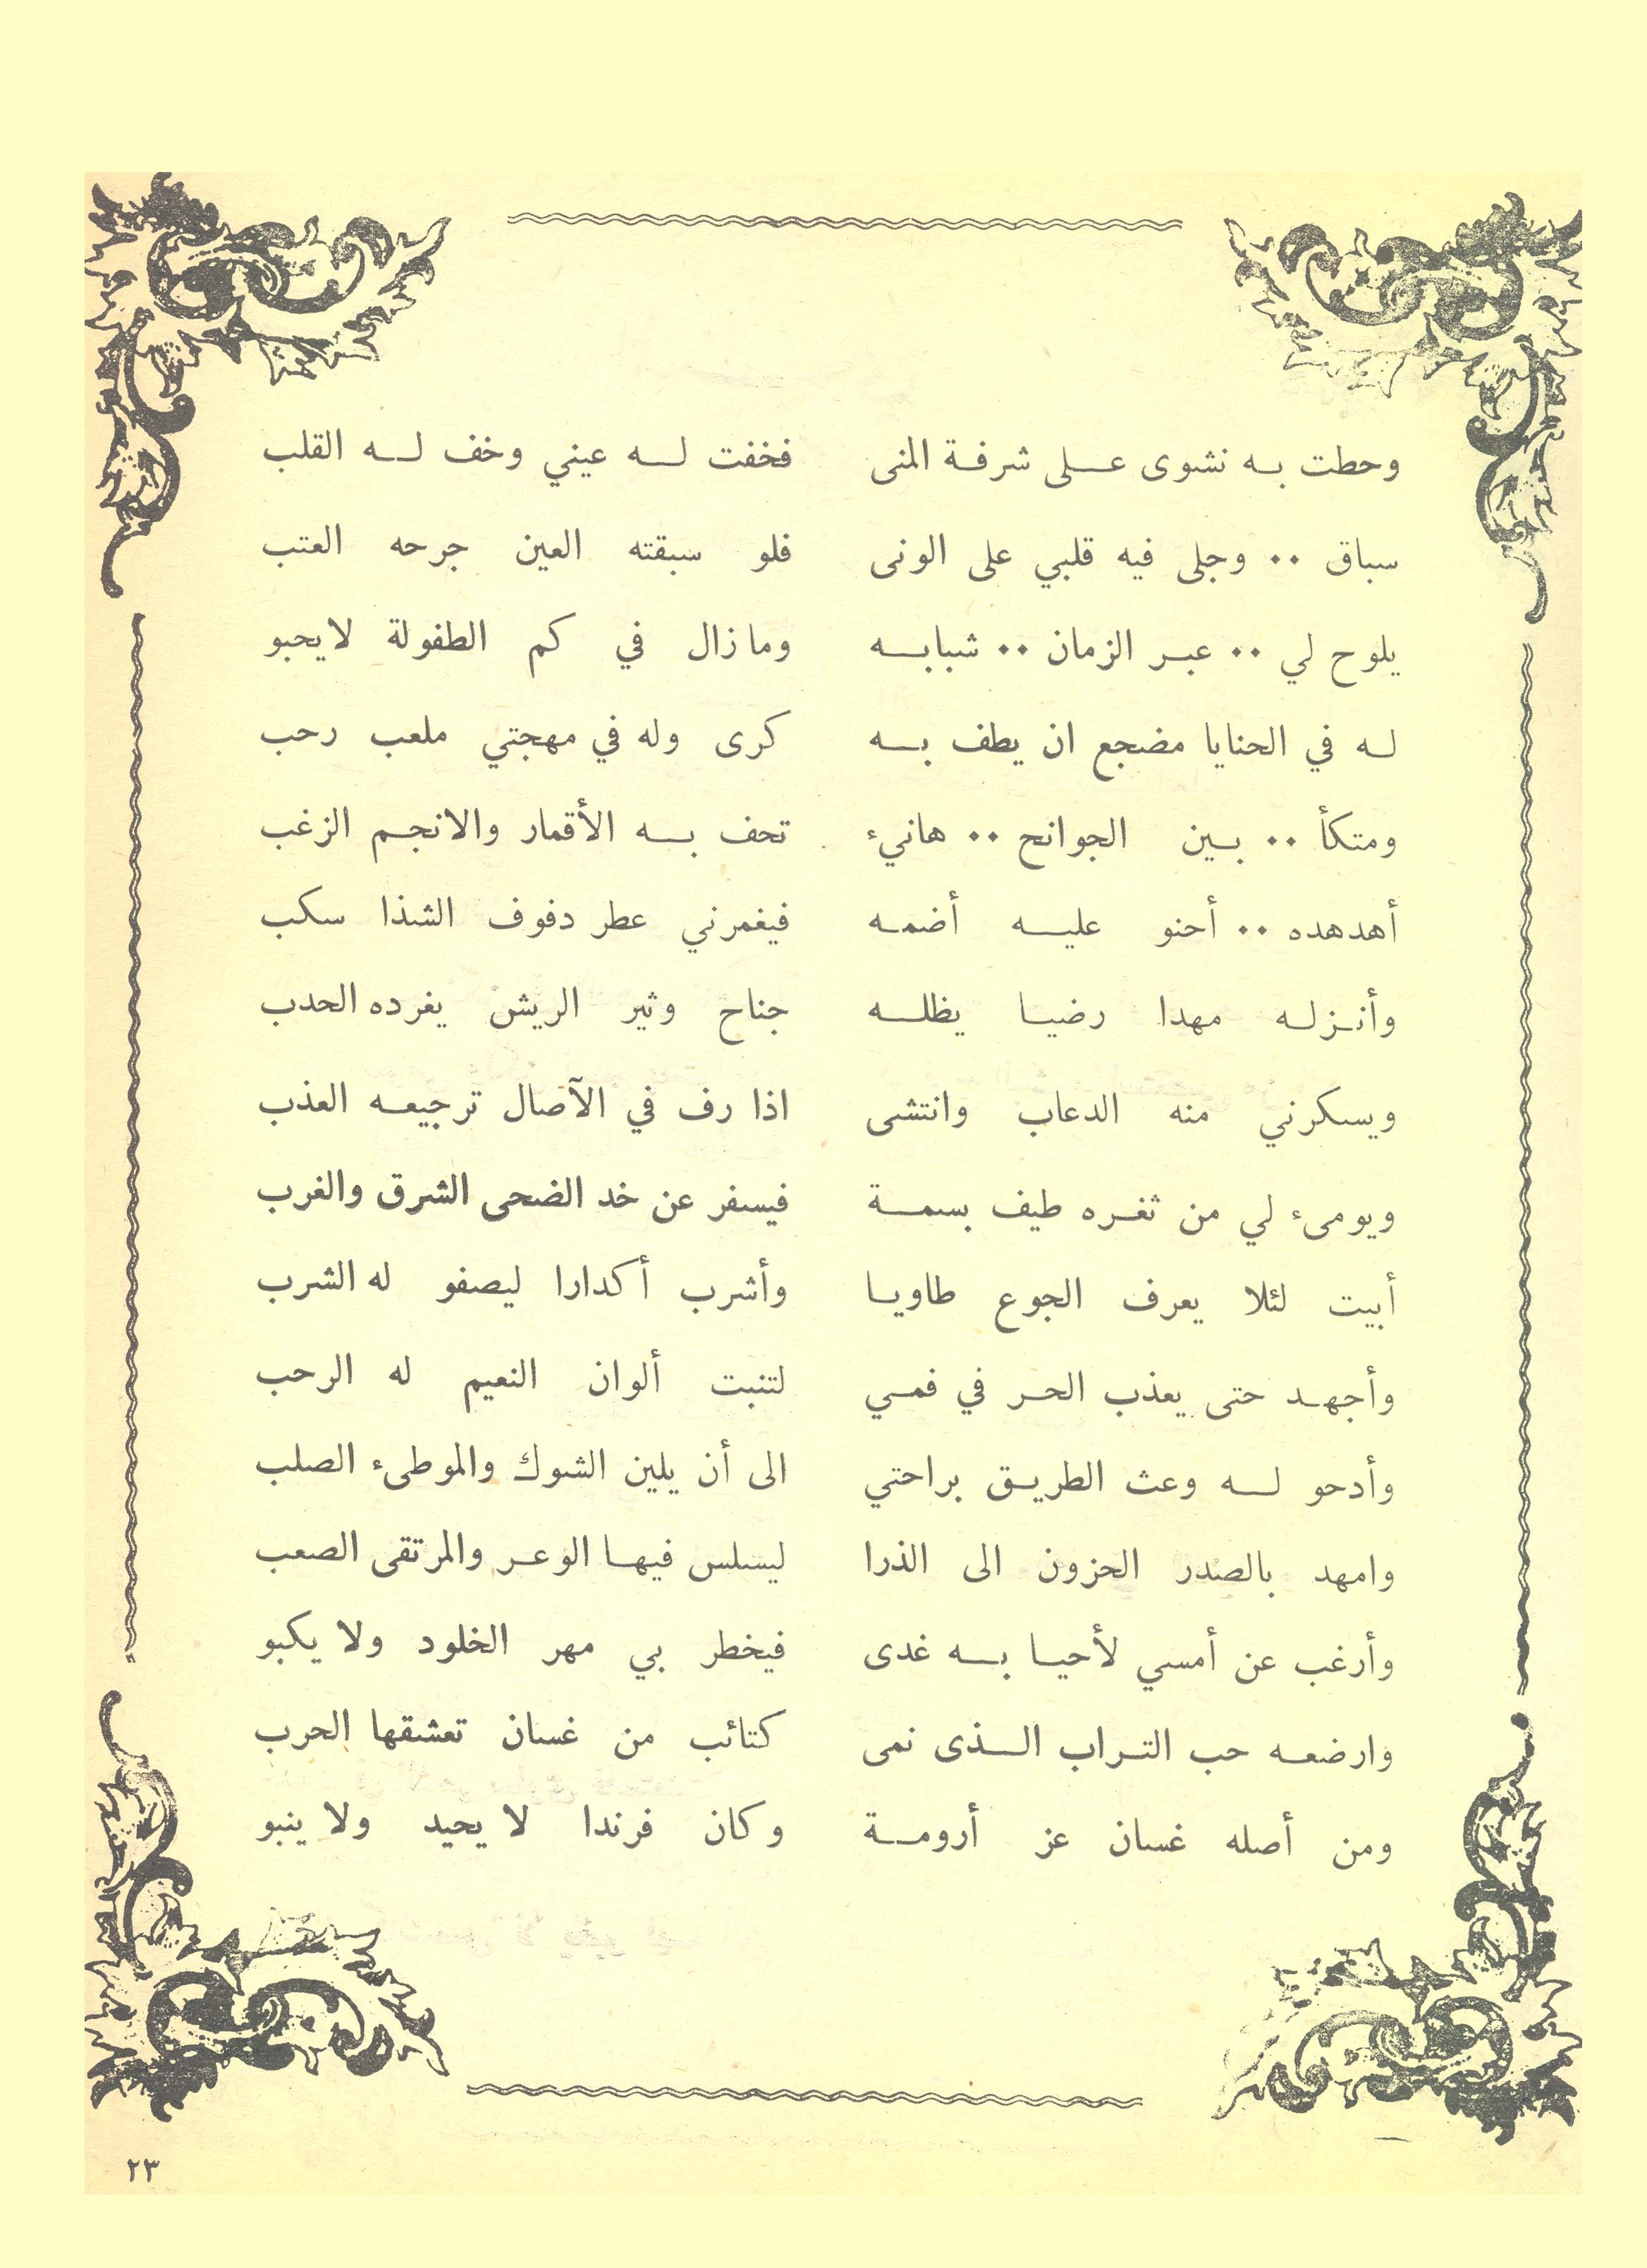 وحطت به نشوى على شرفة المنى فخفت له عيني وخف له القلب
سباق .. وجلى فيه قلبي على الونى فلو سبقته العين جرحه العتب
يلوح لي .. عبر الزمان .. شبابه وما زال في كم الطفولة لا يحبو
له في الحنايا مضجع ان يطف به كرى وله في مهجتي ملعب رحب
ومتكأ .. بين الجوانح .. هانيء تحف به الأقمار والانجم الزغب
أهدهده .. أحنو عليه أضمه فيغمرني عطر دفوف الشذا سكب
وأنزله مهدا رضيا يظله جناح وثير الريش يغرده الحدب
ويسكرني منه الدعاب وانتشى اذا رف في الآصال ترجيعه العذب
ويومىء لي من ثغره طيف بسمة فيسفر عن خد الضحى الشرق والغرب
أبيت لئلا يعرف الجوع طاويا وأشرب أكدارا ليصفو له الشرب
وأجهد حتى يعذب الحر في فمي لتنبت ألوان النعيم له الرحب
وأدحو له وعث الطريق براحتي الى أن يلين الشوك والموطىء الصلب
وامهد بالصدر الحزون الى الذرا ليسلس فيها الوعر والمرتقى الصعب
وأرغب عن أمسي لأحيا به غدى فيخطر بي مهر الخلود ولا يكبو
وارضعه حب التراب الذى نمى كتائب من غسان تعشقها الحرب
ومن أصله غسان عز أرومة وكان فرندا لا يحيد ولا ينبو
٢٣